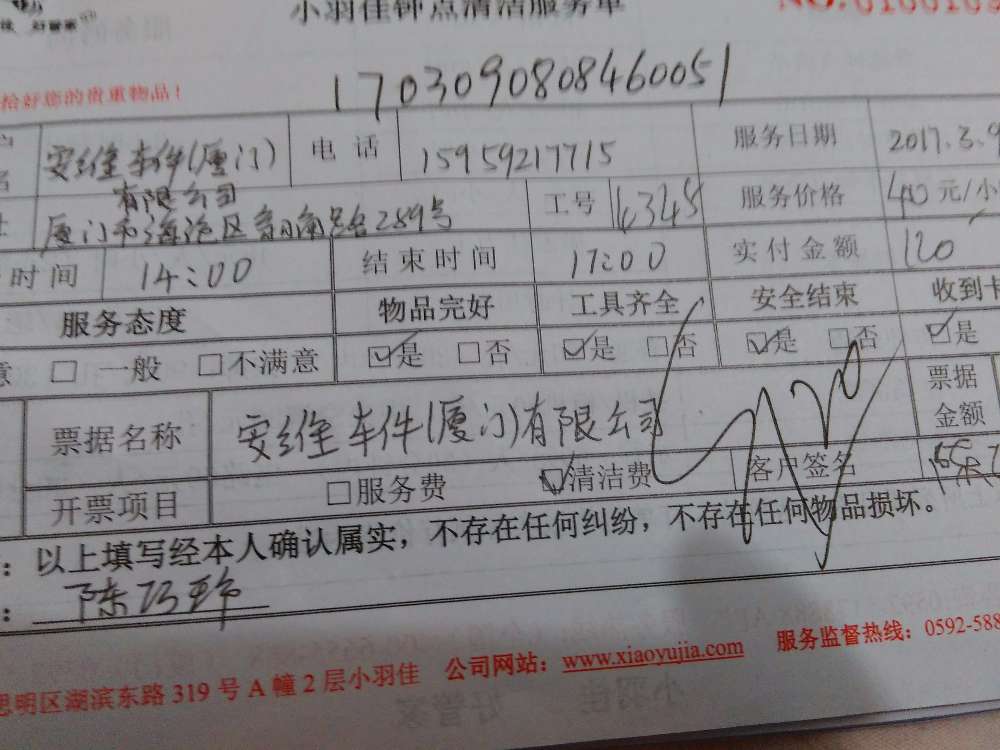 小羽佳钟点清洁服务单
NO.
好管家
17030908084600051
给好您的贵重物品！
安维车件(厦门)有限公司 电话 15959217715 服务日期 2017.3.9
厦门市海沧区 289号 工号 服务价格 40 元/小
时间 14:00 结束时间 17:00 实付金额 120
服务态度 物品完好 工具齐全 安全结束 收到卡
意 □ 一般 □不满意 ☑是 □否 ☑是 □否 ☑是 □否 ☑是
票据名称 安维车件(厦门)有限公司 票据金额
开票项目 □服务费 ☑清洁费 客户签名
：以上填写经本人确认属实，不存在任何纠纷，不存在任何物品损坏。
：陈巧玲
思明区湖滨东路 319 号 A 幢 2 层小羽佳 公司网站：www.xiaoyujia.com 服务监督热线：0592-588